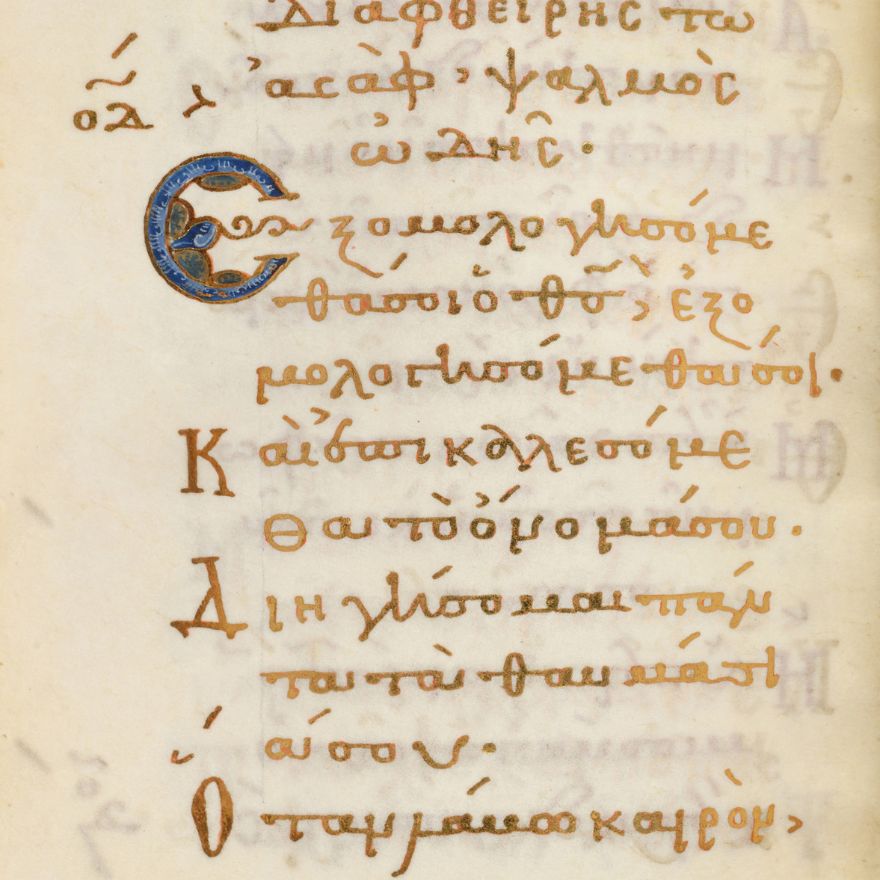 διαφθείρης τῶ
οδ ἀσὰφ, ψαλμὸς
ὠδῆς.
Εξομολογησόμε
θά σοι ὁ θ͞ς, ἐξο
μολογησόμεθά σοι.
Καὶ ἐπικαλεσόμε
θα τὸ ὄνομά σου.
Διηγήσομαι πάν
τα τὰ θαυμάσι
ά σου.
Οταν λάβω καιρὸν,